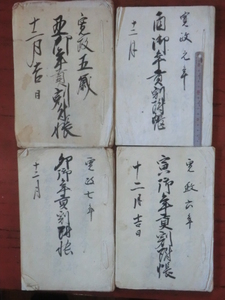 寛政元年
酉御年貢割附帳
十二月
寛政五歳
丑御年貢割附帳
十二月吉日
寛政六年
寅御年貢割附帳
十二月吉日
寛政七年
卯御年貢割附帳
十二月